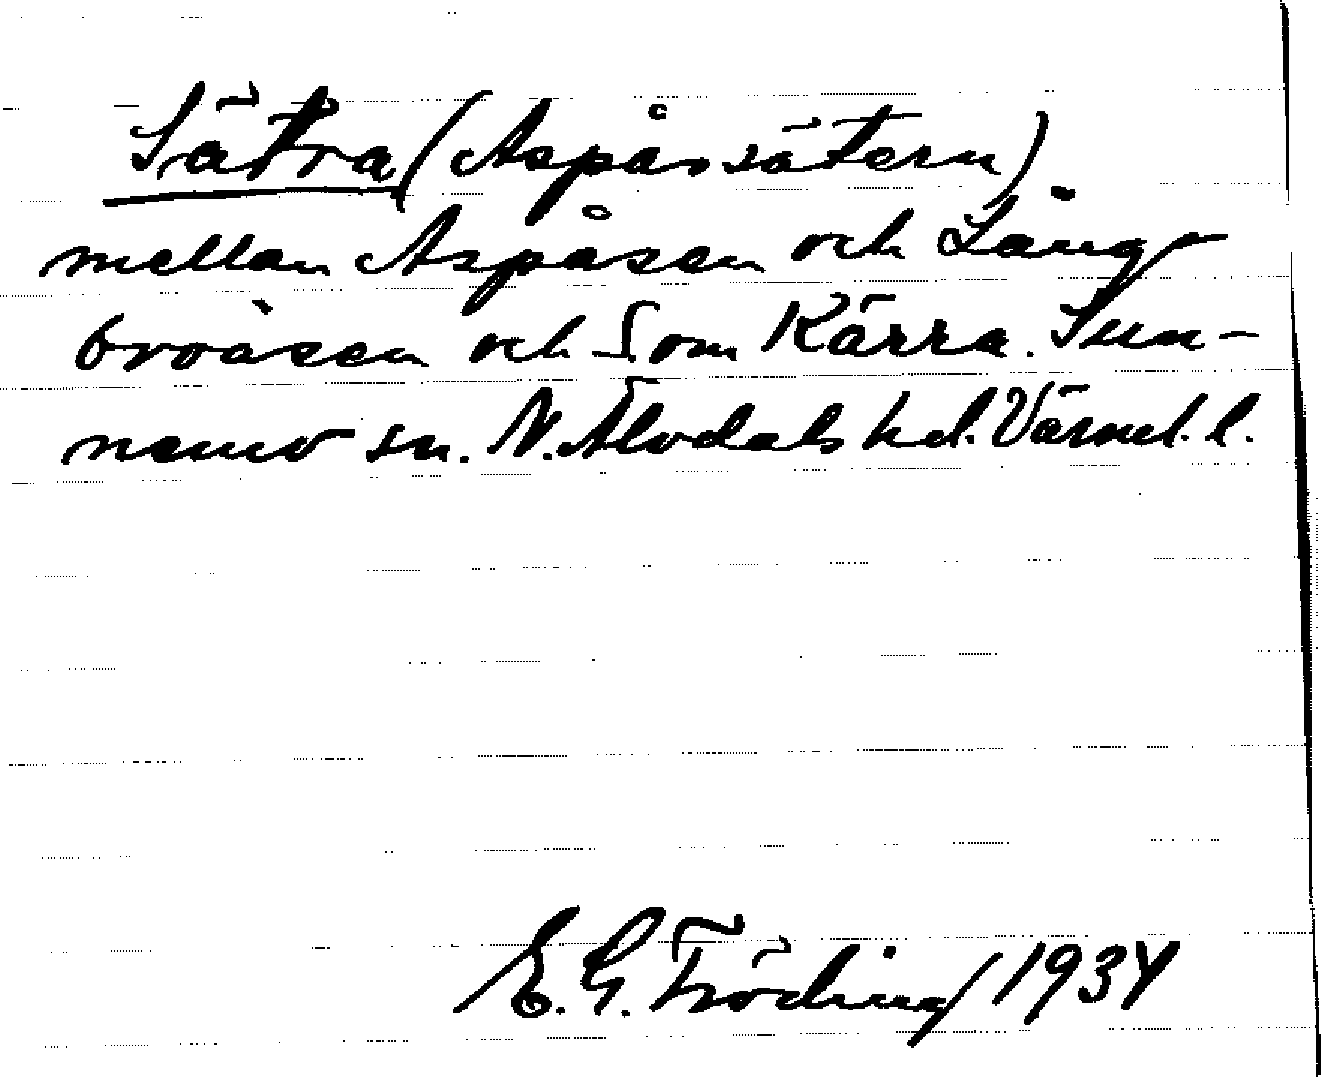 Sätra (Aspåssätern)
mellan Aspåsen och Lång
broåsen och S om Kärra. Sun-
nemo sn. N. Älvdals hd. Värml. l.
E. G. Fröding 1934